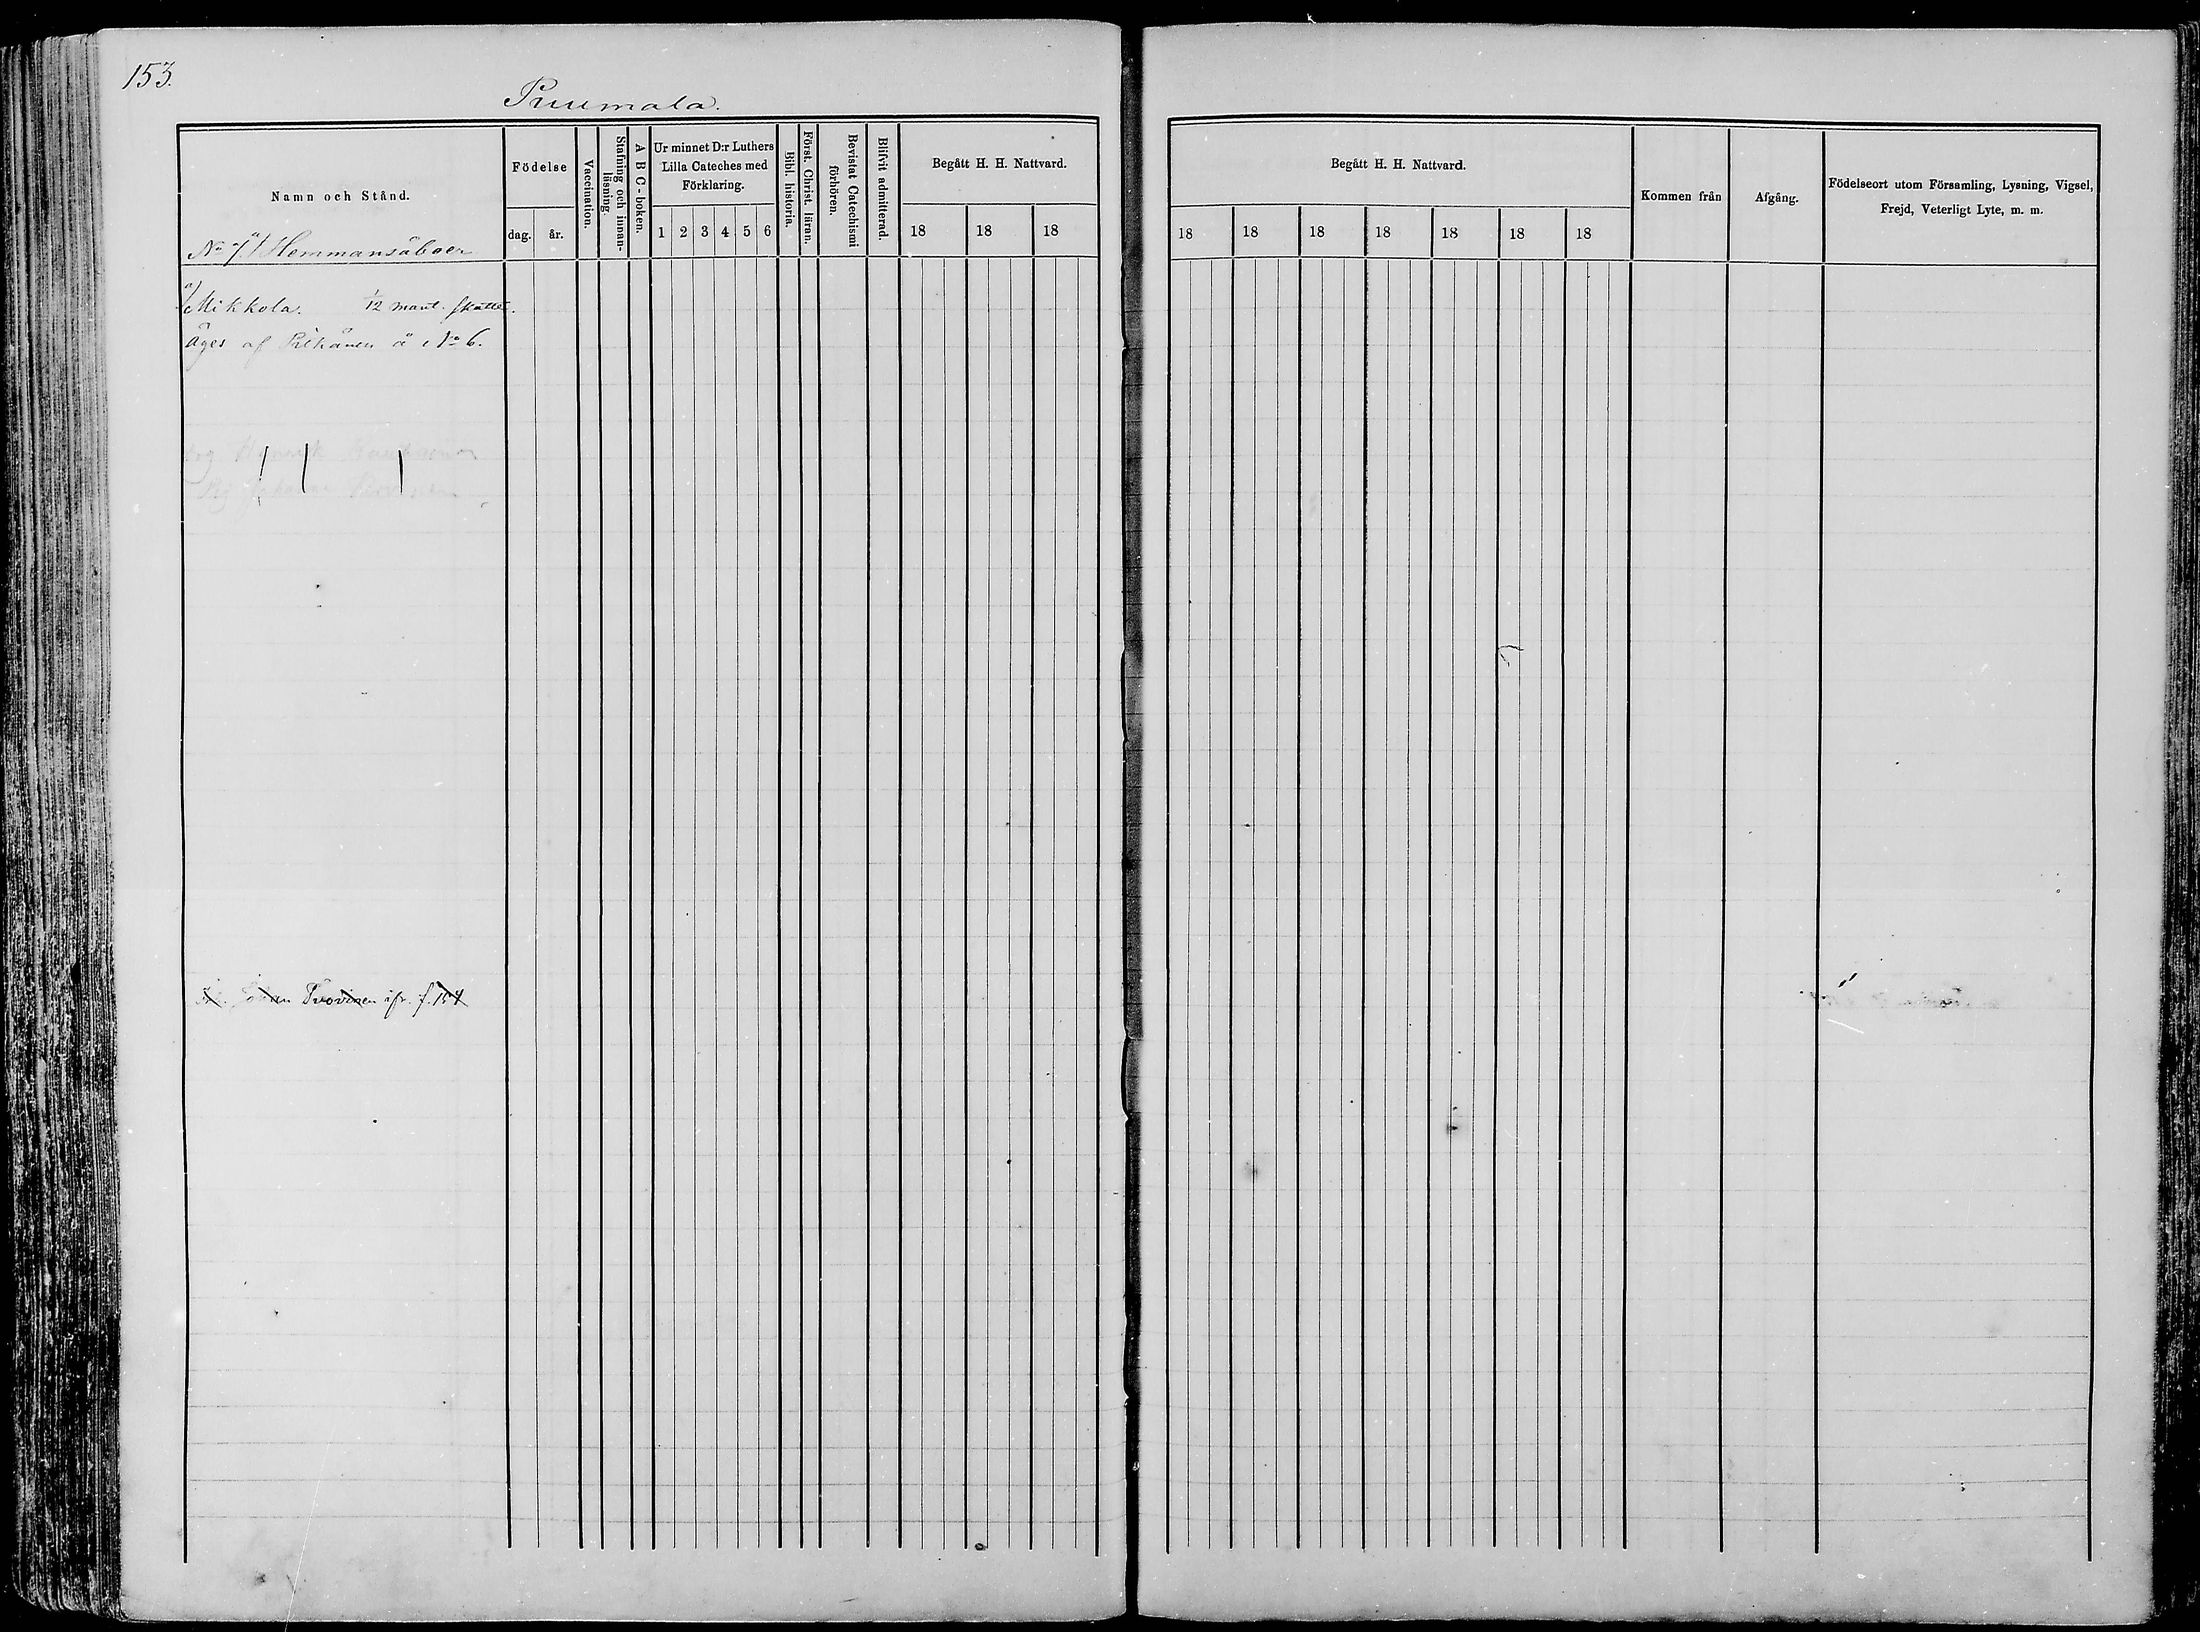 153.
Puumala.
Namn och Stånd.
No 7. Hemmansåboer
Födelse
dag. år.
Vaccination.
Stafning och innan-
läsning.
A B C-boken.
Ur minnet D:r Luthers
Lilla Cateches med
Förklaring.
1 2 3 4 5 6
Bibl. historia.
Först. Christ. läran.
Bevistat Catechismi
förhören.
Blifvit admitterad.
Begått H. H. Nattvard.
18 18 18
Begått H. H. Nattvard.
18 18 18 18 18 18 18
Kommen från
Afgång.
Födelseort utom Församling, Lysning, Vigsel,
Frejd, Veterligt Lyte, m. m.
a/
Mikkola. 1/12 mant. skatte.
Äges af Pikänen å No 6.
Henrik
Johan ifr. f. 154